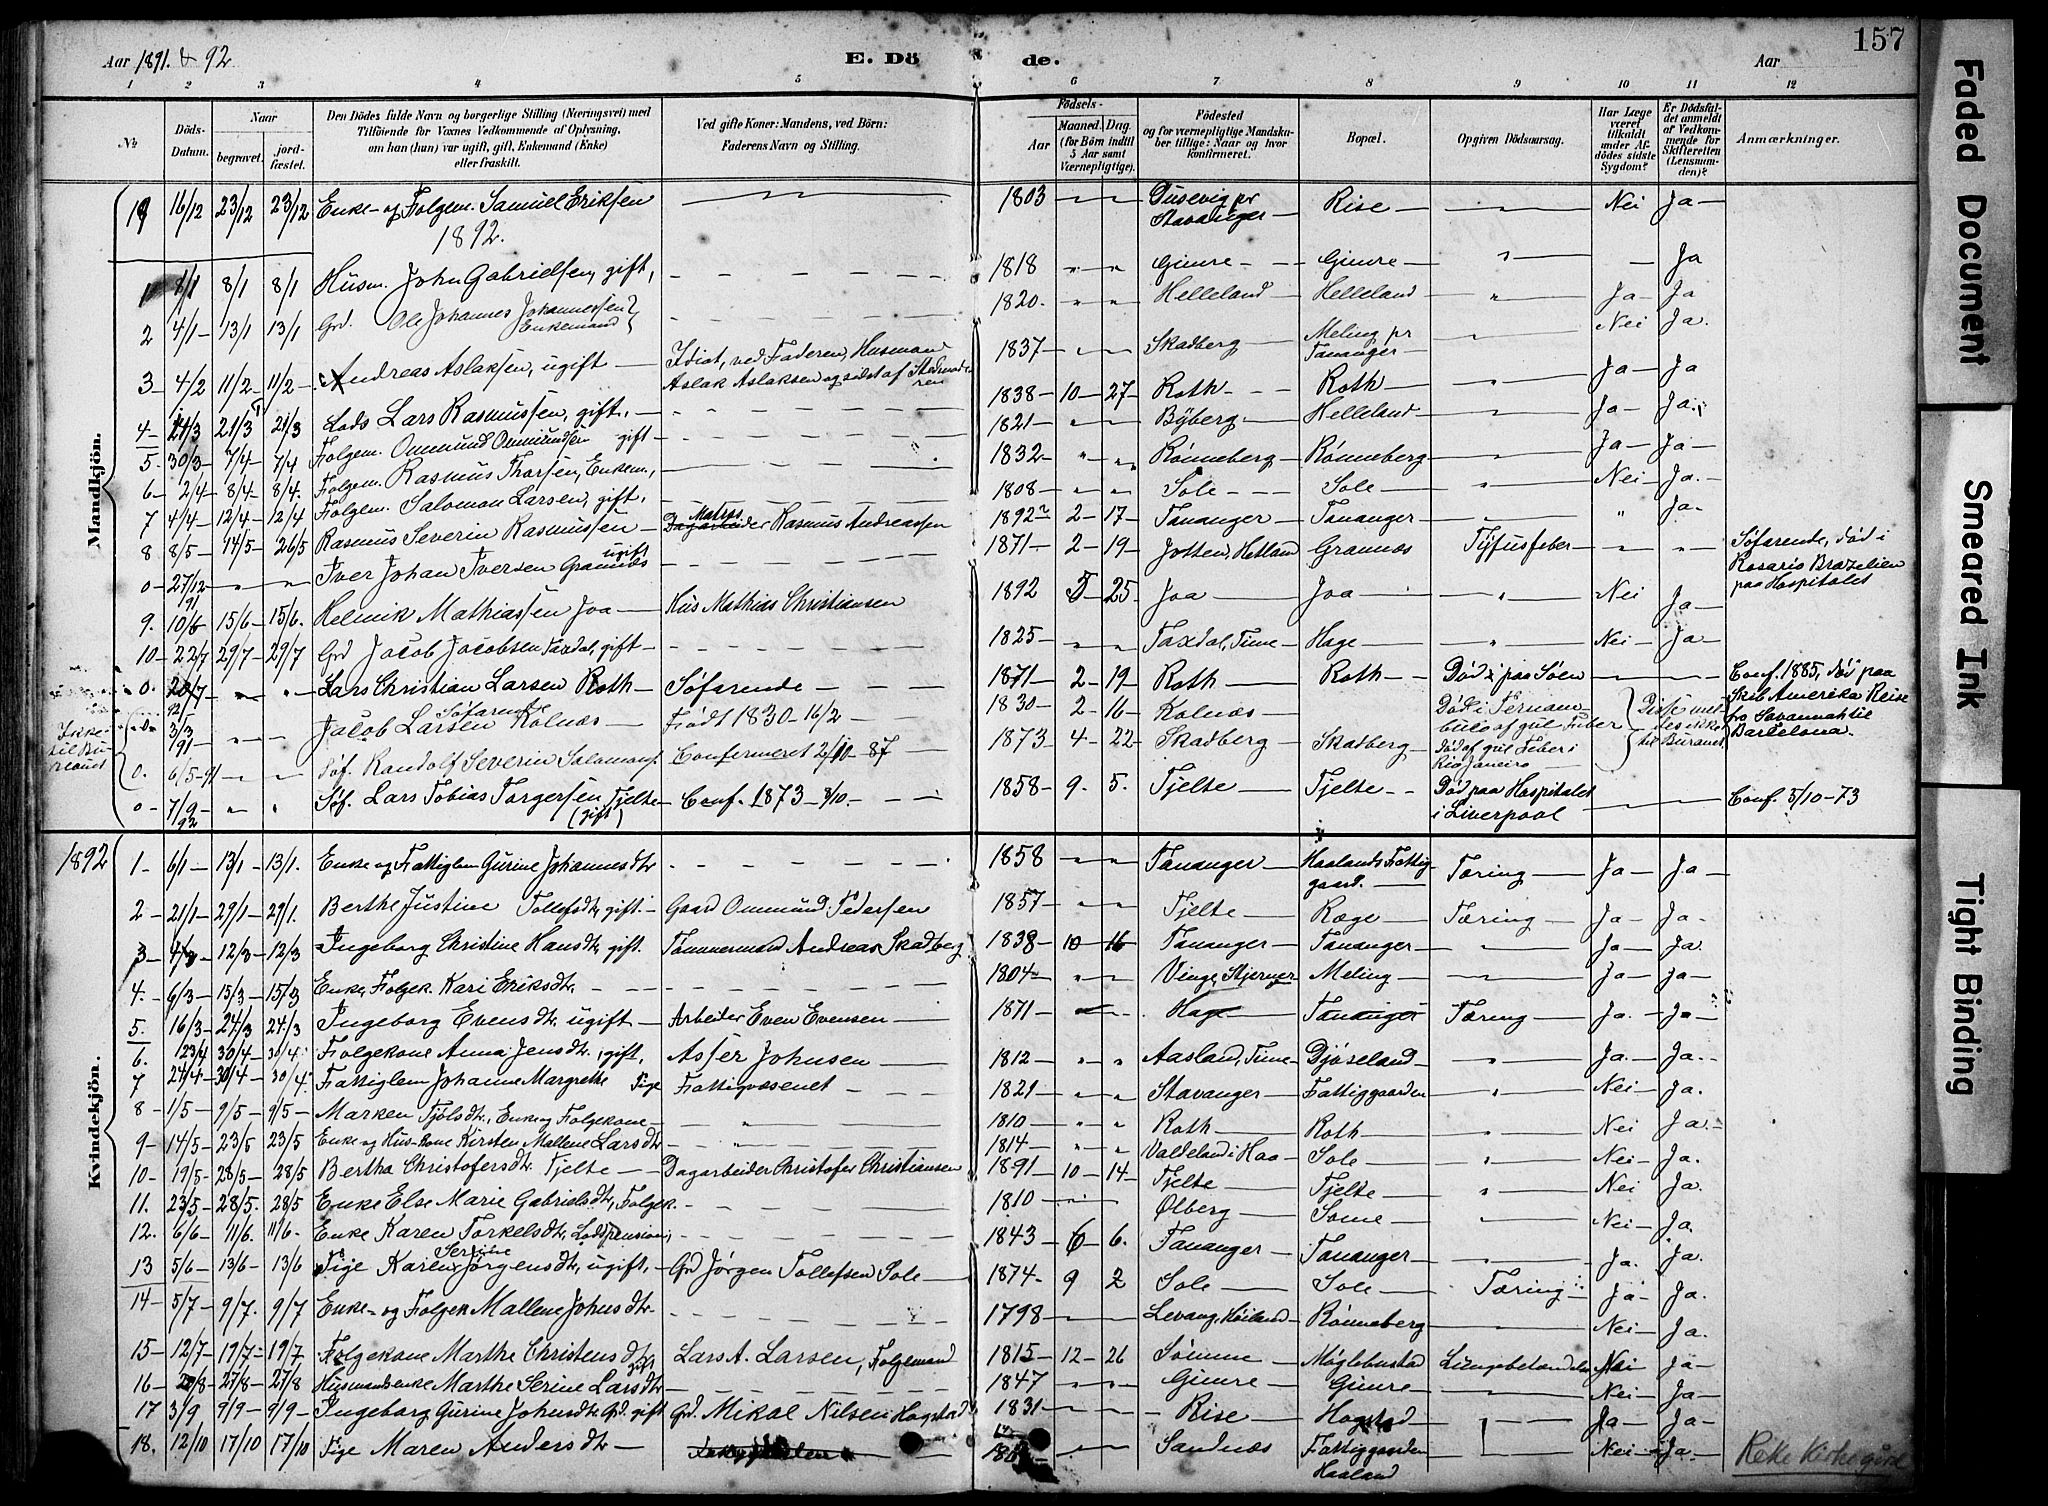 Aar 1891. & 92
E. Dö de.
Aar
157
1 2 3 4 5 6 7 8 9 10 11 12
No
Döds-Datum.
Naar
begravet.
jord-fæstet.
Den Dödes fulde Navn og borgerlige Stilling (Næringsvei) med
Tilföiende for Voxnes Vedkommende af Oplysning,
om han (hun) var ugift, gift, Enkemand (Enke)
eller fraskilt.
Ved gifte Koner: Mandens, ved Börn:
Faderens Navn og Stilling.
Födsels-
Aar
Maaned. Dag.
(for Börn indtil
5 Aar samt
Værnepligtige).
Födested
og for værnepligtige Mandsku-
ber tillige: Naar og hvor
konfirmeret.
Bopæl.
Opgiven Dödsaarsag.
Har Læge
været
tilkaldt
under Af-
dödes sidste
Sygdom?
Er Dödsfal-
det anmeldt
af Vedkom-
mende for
Skifteretten
(Lensman-
den)?
Anmærkninger.
Mandkjön.
19 16/12 23/12 23/12 Enke- og Folgem. Samuel Eriksen 1803 Dusevig pr Stavanger Rise Nei Ja
1892.
1 8/1 8/1 8/1 Husm. John Gabrielsen, gift, 1818 Gimre Gimre Ja
2 4/1 13/1 13/1 Grd. Ole Johannes Johannessen Enkemand 1820. Helleland Helleland Ja Ja
3 4/2 11/2 11/2 Andreas Aslaksen, ugift Idiot, ved Faderen, Husmand Aslak Aslaksen og sidst af 1837 Skadberg Meling pr Tananger Nei Ja.
4 21/3 21/3 Lods Lars Rasmussen, gift. 1838 10 27 Roth Roth Ja Ja
5. 30/3 7/4 7/4 Folgem. Ommund Ommundsen gift 1821 Byberg Helleland Ja Ja.
6 2/4 8/4 8/4. Folgem. Rasmus Thorsen, Enkem., 1832 Rönneberg Rönneberg Ja Ja
7 4/4 12/4 12/4 Folgem. Salomon Larsen, gift, 1808 Sole Sole Nei Ja.
8 8/5 14/5 26/5 Rasmus Severin Rasmussen Matros Rasmus Andreassen 1892 2 17 Tananger Tananger Ja
0 27/12 91 Iver Johan Iversen Grannæs ugift 1871 2 19 Jotten, Hetland Grannæs Tyfusfeber Söfarende, död i Rosario Brazilien paa Hospitalet
9. 10/6 15/6 15/6. Helmik Mathiassen Joa Hus Mathias Christiansen 1892 5 25 Joa Joa Nei Ja
10 22/7 29/7 29/7 Grd Jacob Jacobsen Taxdal, gift 1825 Taxdal, Time Hage Nei Ja
0. 20/7 92 Lars Christian Larsen Roth Söfarende 1871 2 19 Roth Roth Död paa Söen Conf. 1885, död paa Skib Amerika Reise fra Savannah til Barcelona.
0 3/3 91 Jacob Larsen Kolnæs Söfarende Födt 1830 16/2 1830 2 16 Kolnæs Död i Pernambuko af gul Feber
Disse meldes ikke til Buraaet
0. 6/5-91 Söf. Randolf Severin Salomons. Confirmeret 2/10-87 1873 4 22 Skadberg Skadberg Död af gul Feber i Rio Janeiro
0 7/9 92 Söf. Lars Tobias Torgersen Tjelte (gift) Conf. 1873 8/10 1858 9. 5. Tjelte Tjelte Död paa Hospitalet i Liverpool Conf. 5/10-73
1892
Kvindekjön.
1 6/1 13/1 13/1. Enke og Fattiglem Gurine Johannesdtr 1858 Tananger Haalands Fattiggaard. Tæring Ja Ja
2 21/1 29/1 29/1. Berthe Justine Tollefsdtr, gift. Gaard Ommund Pedersen 1857 Tjelte Ræge Tæring Ja Ja.
3 4/3 12/3 12/3 Ingeborg Christine Hansdtr, gift. Tömmermand Andreas Skadberg 1838 10 16 Tananger Tananger Ja Ja.
4. 6/3 15/3 15/3 Enke, Folgek. Kari Eriksdtr. 1804 Vinge, Stjerner Meling Ja Ja
5. 16/3 24/3 24/3 Ingeborg Evensdtr, ugift Arbeider Even Evensen 1871 Hage Tananger Tæring Ja. Ja
6. 23/4 30/4 30/4. Folgekone Anna Jensdtr, gift, Asser Johnsen 1812 Aasland, Time Djöseland Ja. Ja.
7 24/4 30/4 30/4. Fattiglem Johanne Margrethe Pige Fattigvæsenet 1821 Stavanger Fattiggaarden Nei Ja.
8 1/5 9/5 9/5 Marken Tjölsdtr, Enke og Folgekone 1810 Roth Roth Nei Ja.
9 14/5 23/5 23/5 Enke og Hus-kone Kirsten Mallene Larsdtr 1814 Valdeland i Haa Sole Nei Ja.
10 19/5 28/5 28/5 Bertha Christofersdtr Tjelte Dagarbeider Christofer Christiansen 1891 10 14 Tjelte Tjelte Nei Ja.
11. 23/5 28/5. 28/5 Enke Else Marie Gabrielsdtr, Folgek. 1810 Ølberg Some Nei Ja.
12. 6/6 11/6. 11/6. Enke Karen Torkelsdtr, Lodspension 1843 6 6. Tananger Tananger Ja. Ja.
13 5/6 13/6 13/6 Pige Karen Serine Jörgensdtr, ugift, Grd Jörgen Tollefsen Sole 1874 9 2 Sole Sole Tæring Ja Ja.
14 5/7 9/7. 9/7 Enke- og Folgek Mallene Johnsdtr 1798 Levang, Höiland Rönneberg Nei Ja.
15 12/7 19/7 19/7 Folgekone Marthe Christensdtr gift Lars A. Larsen, Folgemand 1815 12 26 Sömme Möglebustad Lungebetændelse Nei Ja
16 27/8 27/8 Husmandsenke Marthe Serine Larsdtr 1847 Gimre Gimre Nei Ja
17 3/9 9/9 9/9 Ingeborg Gurine Johnsdtr Grd. gift Grd. Mikal Nilsen Hogstad 1831 Rise Hogstad Ja Ja
18. 12/10 17/10 17/10 Pige Maren Andersdtr Sandnæs Fattiggaarden Haaland Nei Ja.
Reke Kirkegård
Faded Document
Smeared Ink
Tight Binding